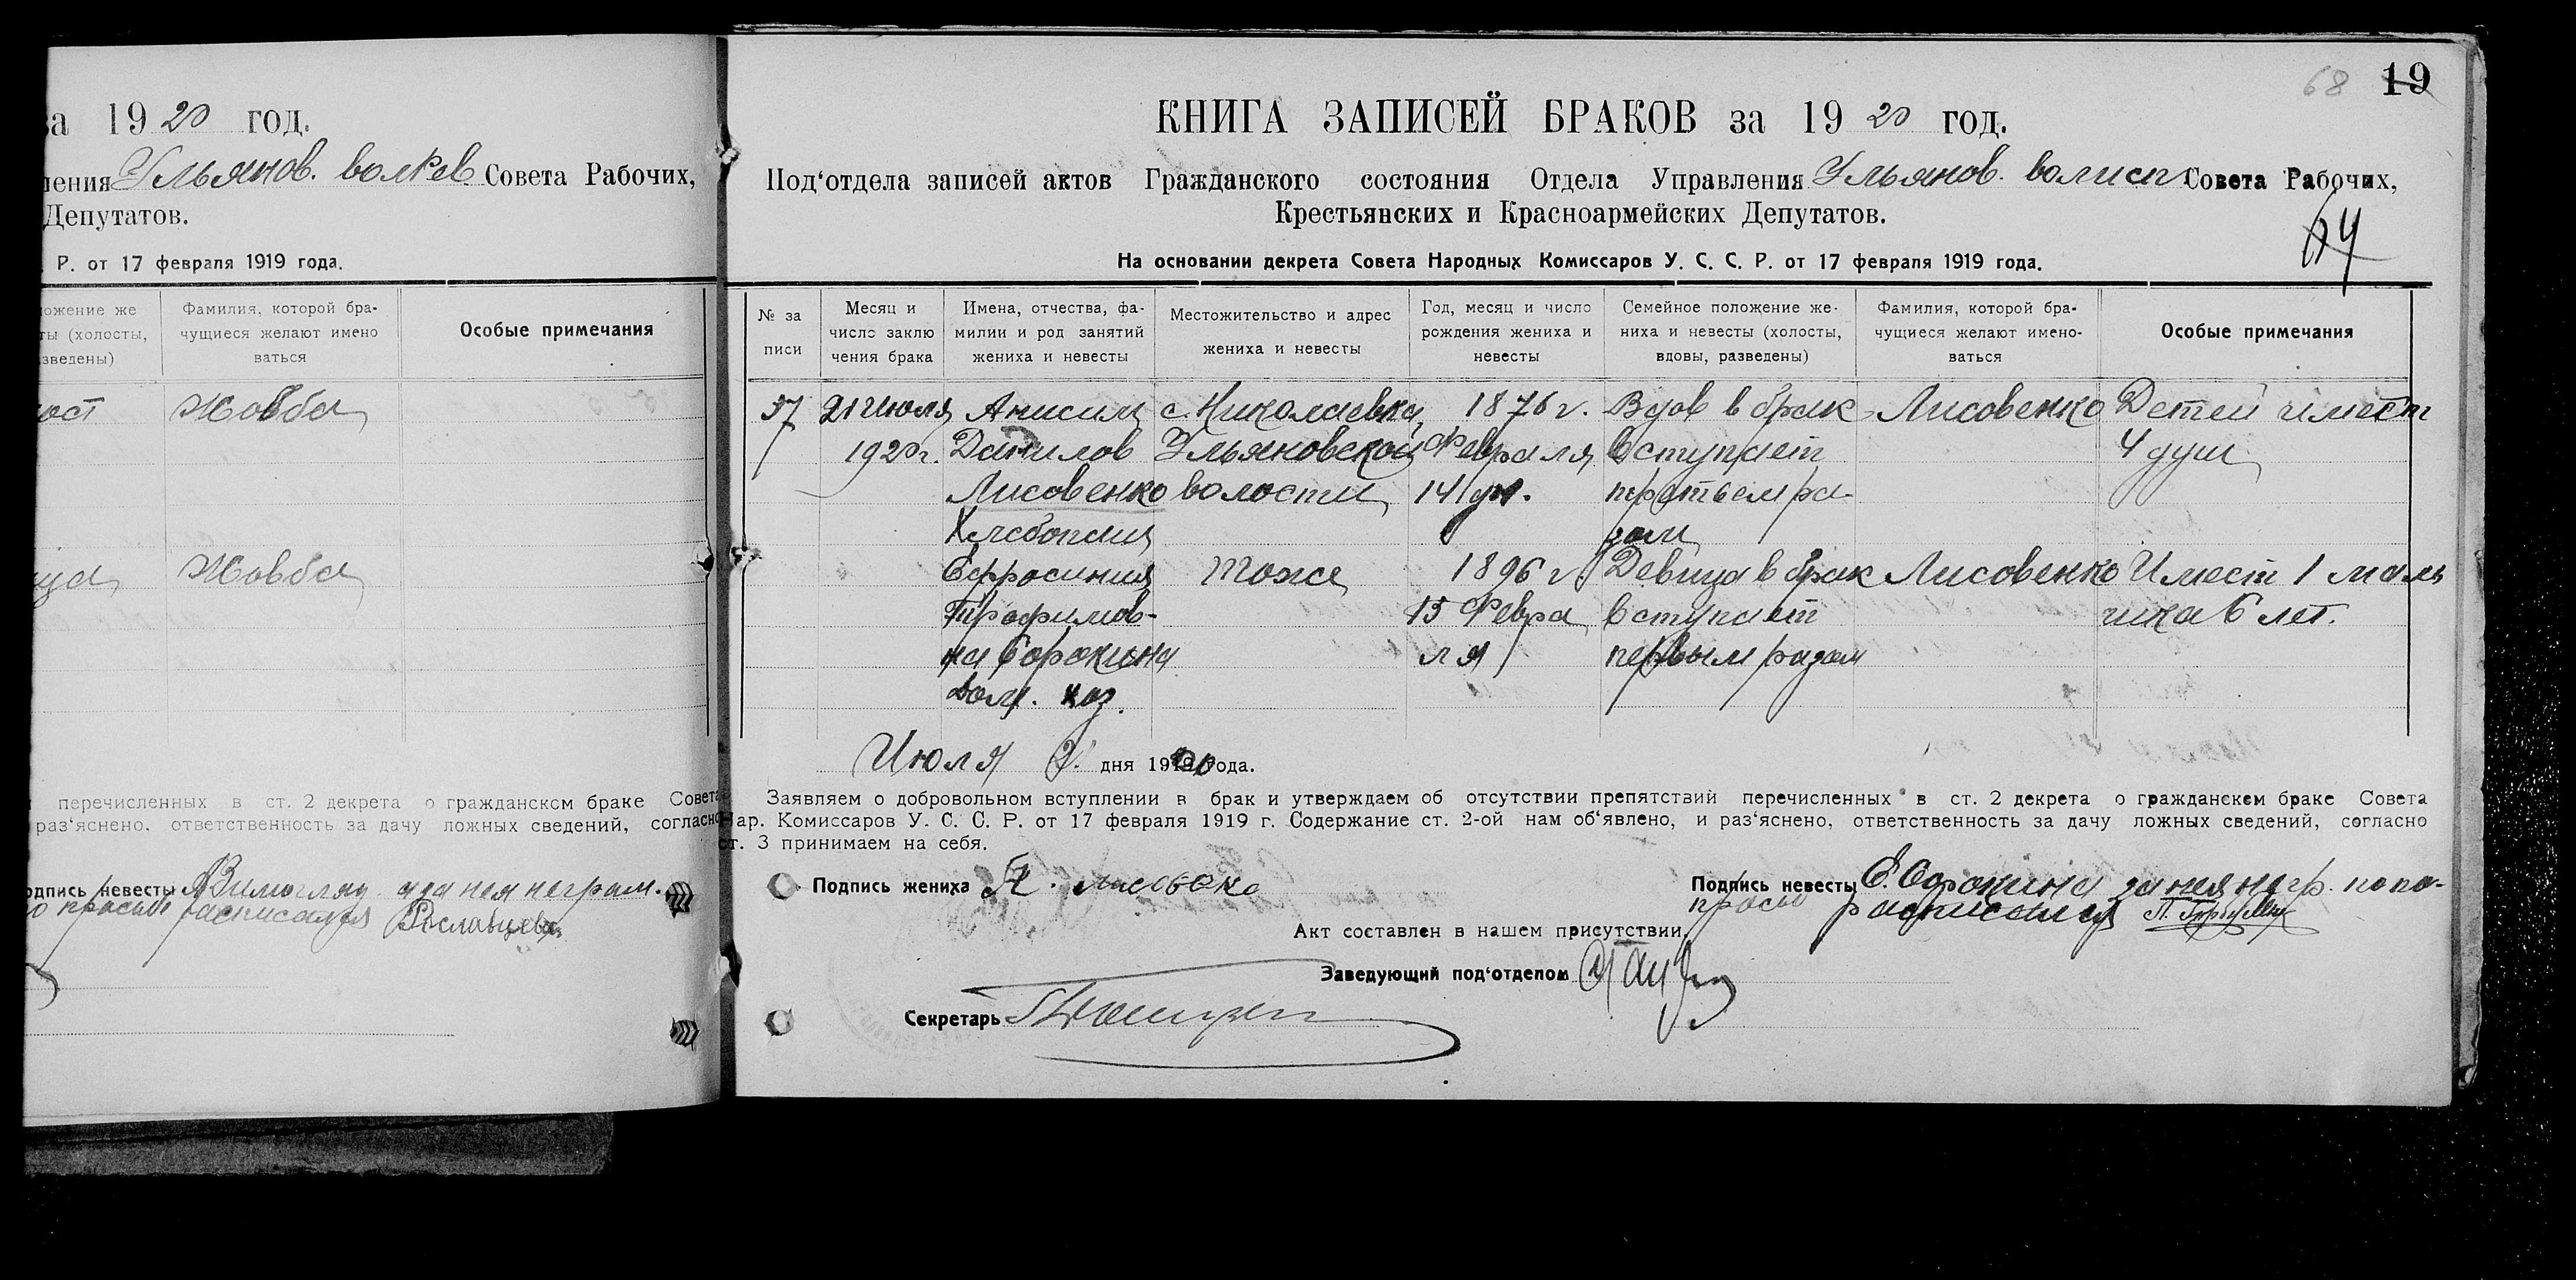 за 19 20 год.
ления Ульянов. волРев. Совета Рабочих,
Депутатов.
Р. от 17 февраля 1919 года.
ожение же
ты (холосты,
зведены)
Фамилия, которой бра-
чущиеся желают имено
ваться
Особые примечания
ост Жовба
ица Жовба
перечисленных в ст. 2 декрета о гражданском браке Совета
раз'яснено, ответственность за дачу ложных сведений, согласно
одпись невесты неграм.
расписался
68 19
КНИГА ЗАПИСЕЙ БРАКОВ за 19 20 год.
Под'отдела записей актов Гражданского состояния Отдела Управления Ульянов. волисп Совета Рабочих,
Крестьянских и Красноармейских Депутатов.
На основании декрета Совета Народных Комиссаров У. С. С. Р. от 17 февраля 1919 года.
№ за
писи
Месяц и
число заклю
чения брака
Имена, отчества, фа-
милии и род занятий
жениха и невесты
Местожительство и адрес
жениха и невесты
Год, месяц и число
рождения жениха и
невесты
Семейное положение же-
ниха и невесты (холосты,
вдовы, разведены)
Фамилия, которой бра-
чущиеся желают имено-
ваться
Особые примечания
37 21 Июля Анисим с. Николаевка, 1876 г. Вдов в брак Лисовенко Детей имеет
1920 г. Данилов Ульяновской Февраля вступает 4 душ
Лисовенко волости 14 дн. третьем ра-
Хлебопаш зом
Ефросиния тоже 1896 г. Девица в брак Лисовенко Имеет 1 маль
Трофимов- 15 Февра вступает чика 6 лет.
на Сорокина ля первым разом
дом. хоз.
Июля 2 дня 1920 года.
Заявляем о добровольном вступлении в брак и утверждаем об отсутствии препятствий перечисленных в ст. 2 декрета о гражданском браке Совета
Нар. Комиссаров У. С. С. Р. от 17 февраля 1919 г. Содержание ст. 2-ой нам об'явлено, и раз'яснено, ответственность за дачу ложных сведений, согласно
ст. 3 принимаем на себя.
Подпись жениха Подпись невесты Е. Сорокина за нея негр. по по-
просьб расписался
Акт составлен в нашем присутствии.
Заведующий под'отделом
Секретарь